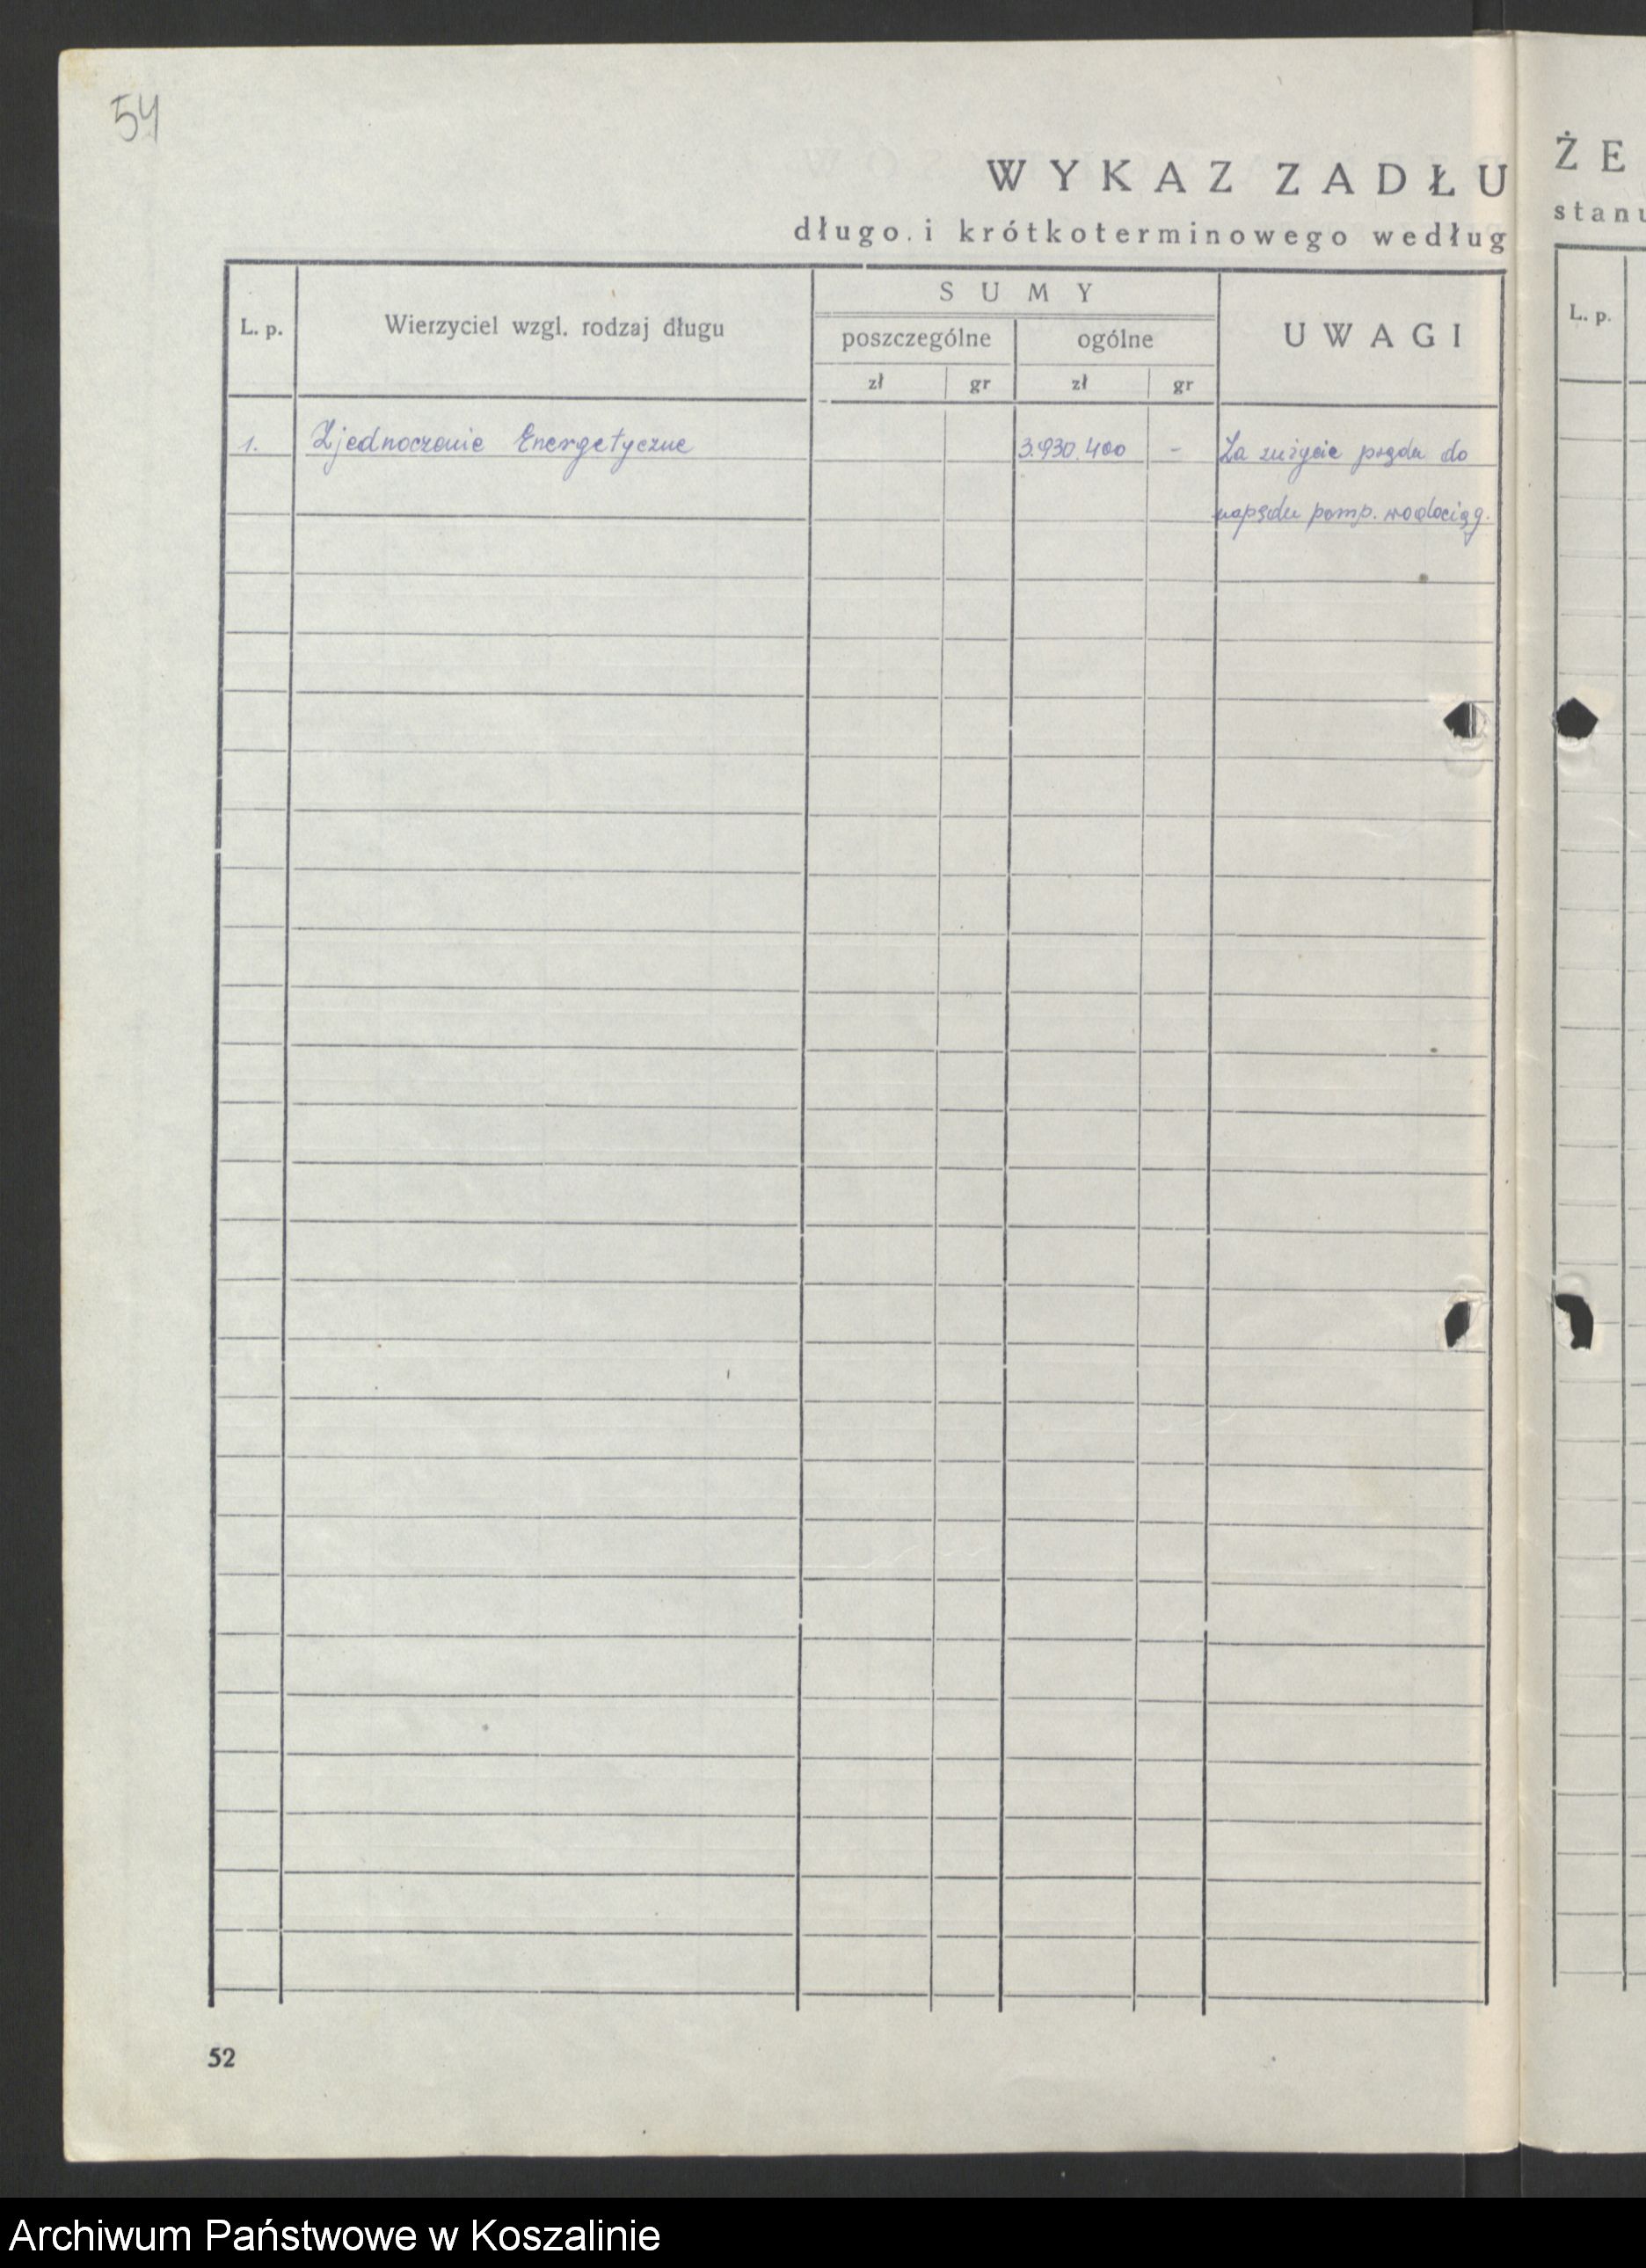 54
WYKAZ ZADŁU
długo. i krótkoterminowego według
L. p.
Wierzyciel wzgl. rodzaj długu
SUMY
poszczególne
ogólne
zł
gr
zł
gr
UWAGI
1. Zjednoczenie Energetyczne 3.930.400 - Za zużycie prądu do
napędu pomp. wodociąg.
52
ŻE
stanu
L. p.
Archiwum Państwowe w Koszalinie